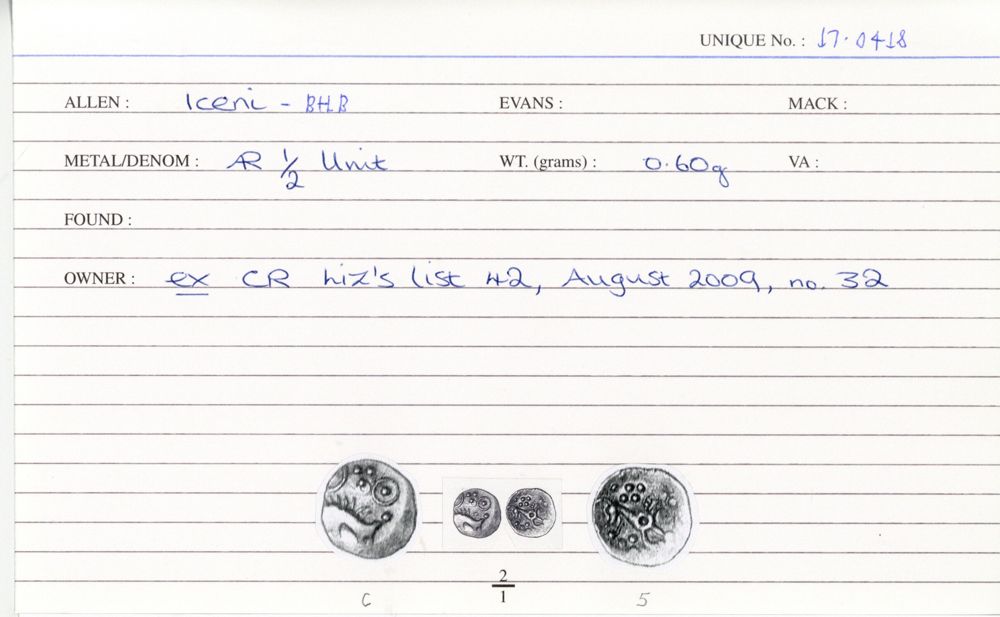 UNIQUE No. : 17.0418
ALLEN : Iceni - BHB EVANS : MACK :
METAL/DENOM : AR 1/2 Unit WT. (grams) : 0.60g VA :
FOUND :
OWNER : ex CR Liz's list 42, August 2009, no. 32
2
1
C 5